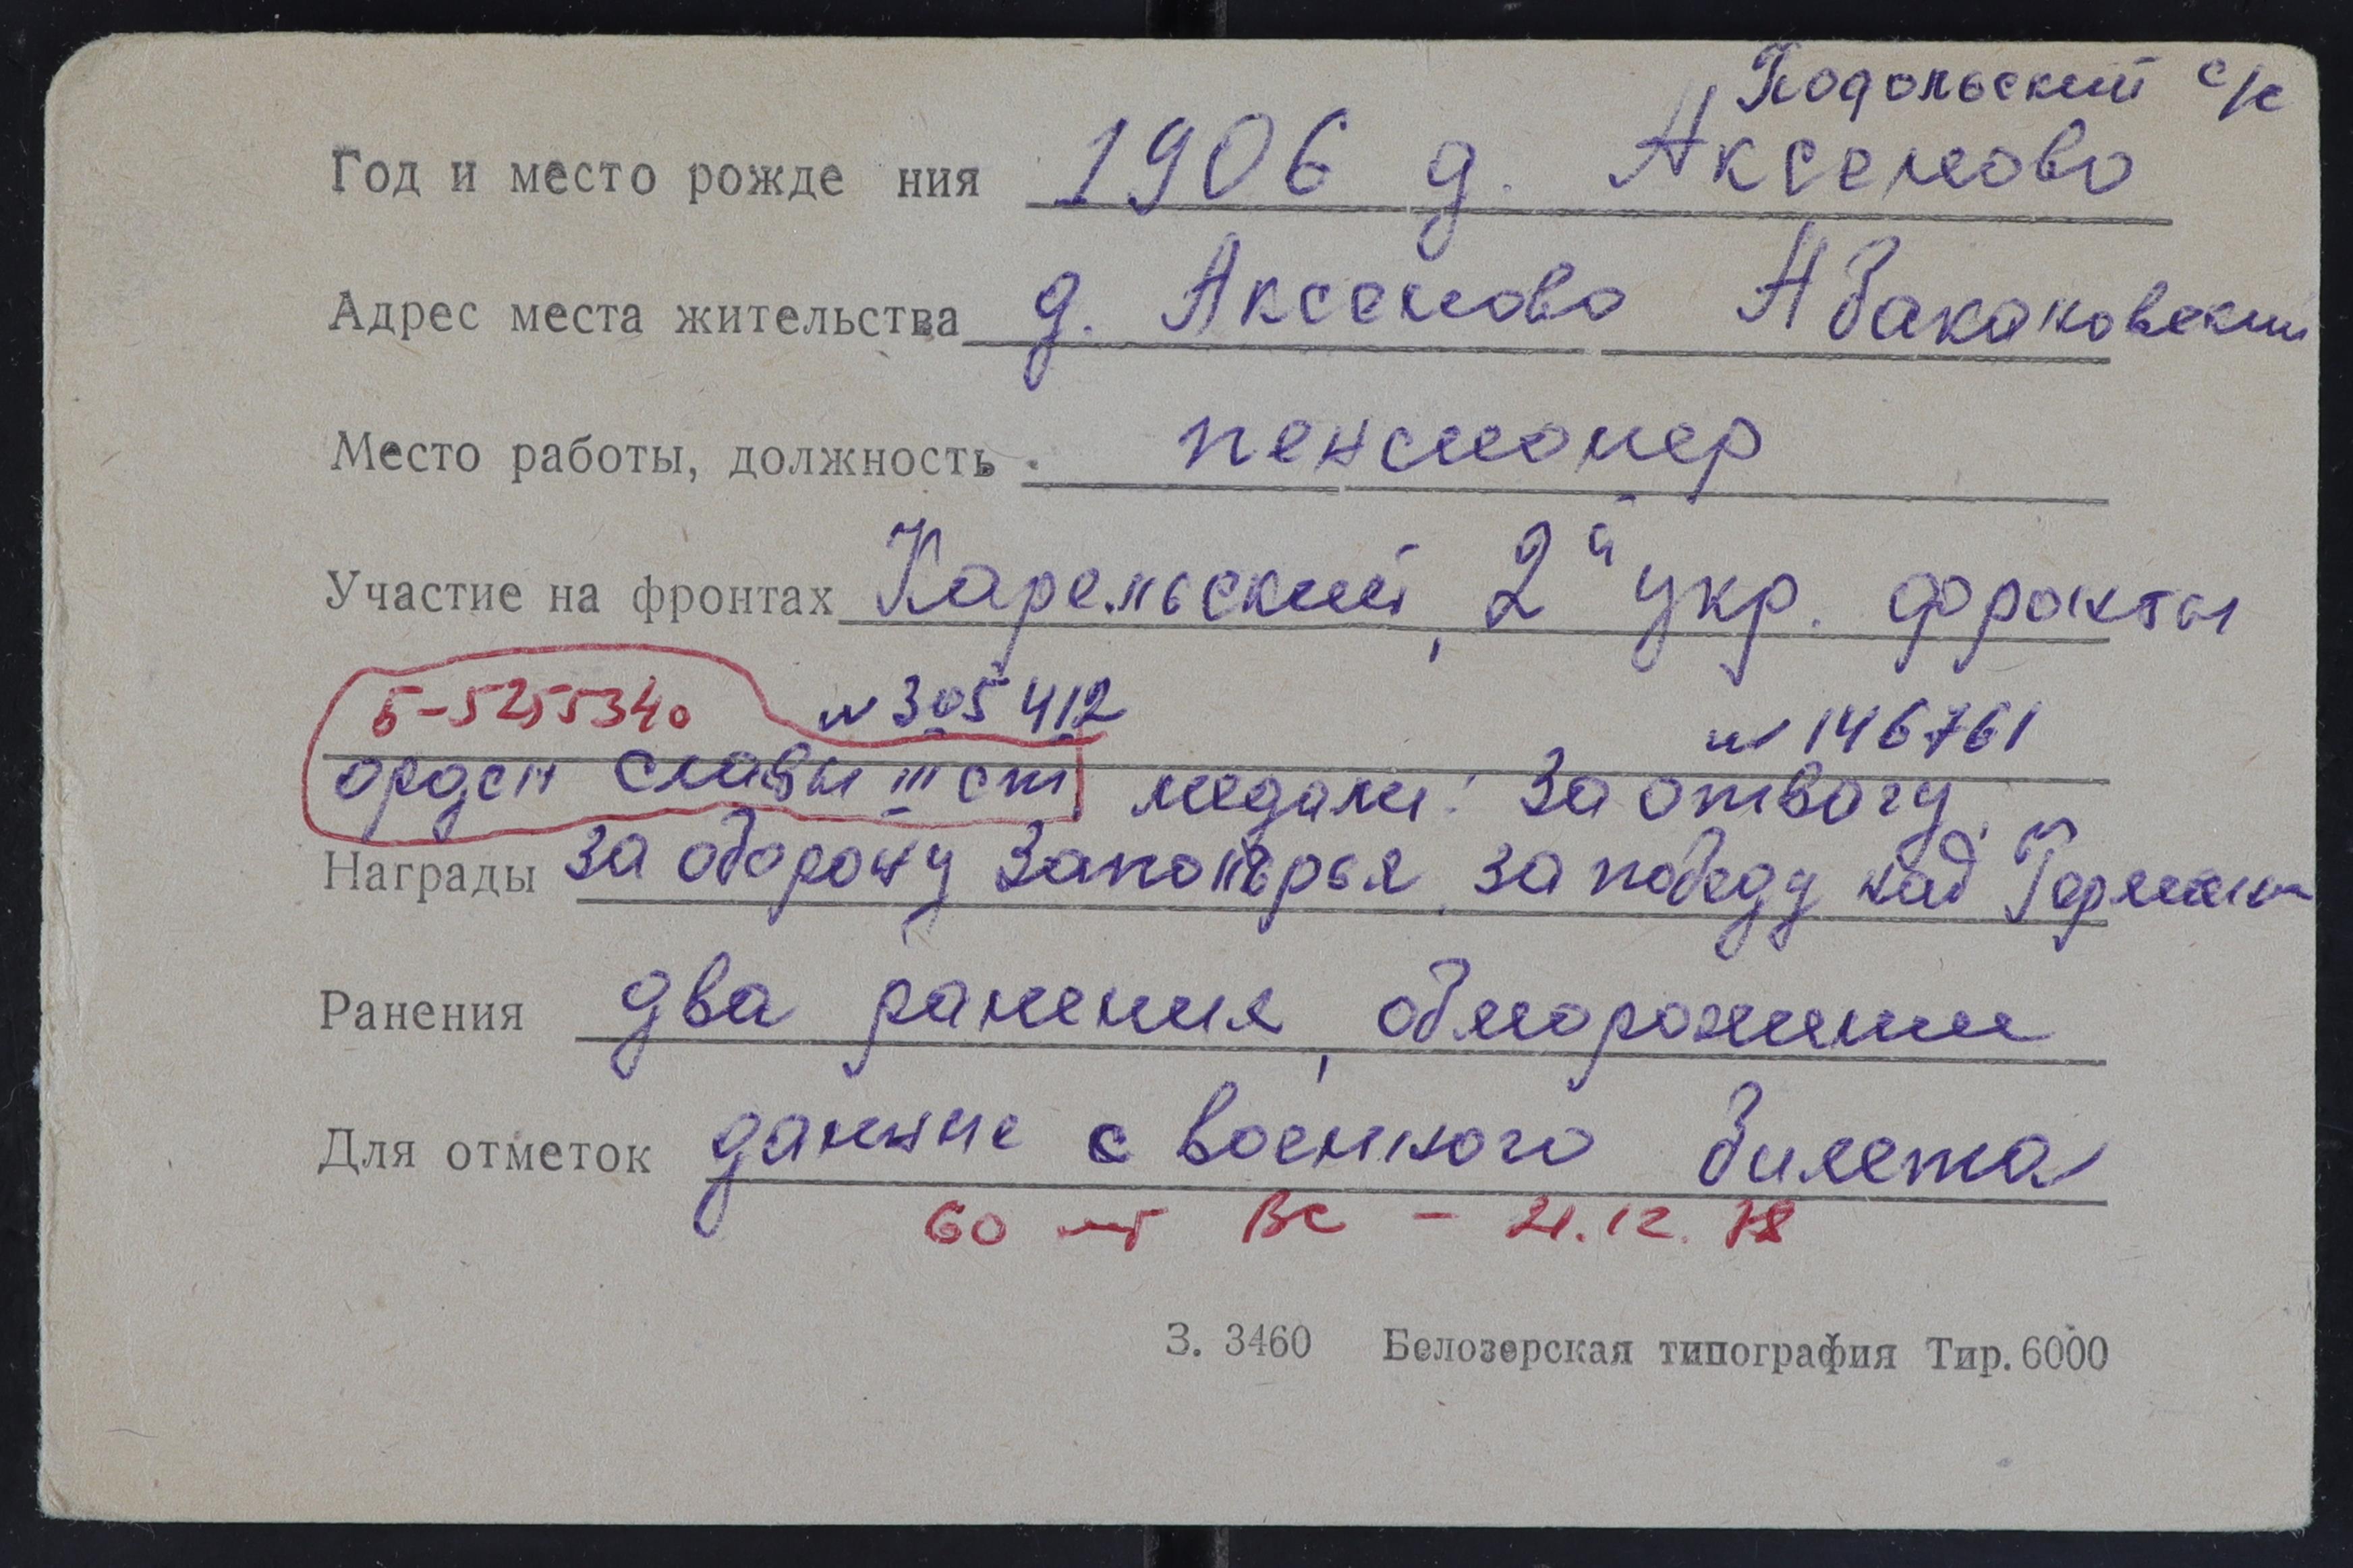 Подольский с/с
Год и место рожде ния 1906 д. Аксеново
Адрес места жительства д. Аксеново Абакановский
Место работы, должность пенсионер
Участие на фронтах Карельский, 2й укр. фронты
Б-5255340 № 305412 № 146761
орден славы III ст медали: За отвагу,
Награды за оборону Заполярья, за победу над Герман
Ранения два ранения, обморожение
Для отметок данные с военного билета
60 лет ВС - 21.12.78
З. 3460 Белозерская типография Тир. 6000